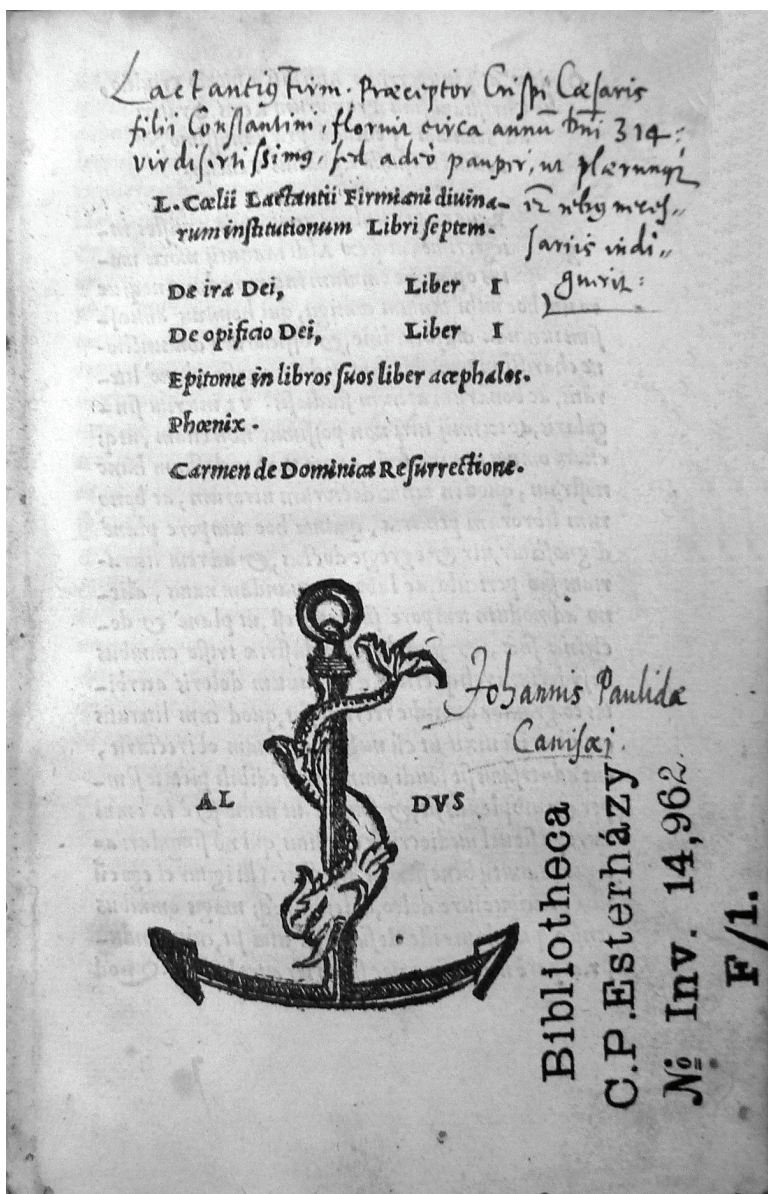 Lactantius Firm. Præceptor Crispi Cæsaris
filii Constantini, floruit circa annũ dñi 314:
vir disertissimus, sed adeò pauper, ut plærunq
L. Cœlii Lactantii Firmiani diuina-
rum institutionum Libri septem.
rebus neces„
sariis indi„
guerit:
De ira Dei, Liber I
De opificio Dei, Liber I
Epitome in libros suos liber acephalos.
Phœnix.
Carmen de Dominica Resurrectione.
Johannis Paulidæ
Canisæi.
AL DVS
Bibliotheca
C.P.Esterházy
№ Inv. 14,962.
F/1.